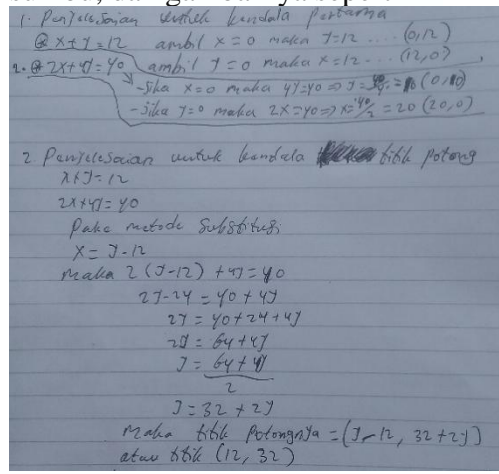 1. Penjelesaian untuk kendala pertama
@ x+y=12 ambil x=0 maka y=12 .... (0,12)
ambil y=0 maka x=12 ... (12,0)
2. 2x+4y=40
- jika x=0 maka 4y=40 => y=40/4=10 (0,10)
- jika y=0 maka 2x=40 => x=40/2=20 (20,0)
2. Penjelesaian untuk kendala titik potong
x+y=12
2x+4y=40
Pake metode Substitusi
x=y-12
maka 2(y-12)+4y=40
2y-24=40+4y
2y=40+24+4y
2y=64+4y
y=64+4y
2
y=32+2y
maka titik potongnya = (y-12, 32+2y)
atau titik (12, 32)